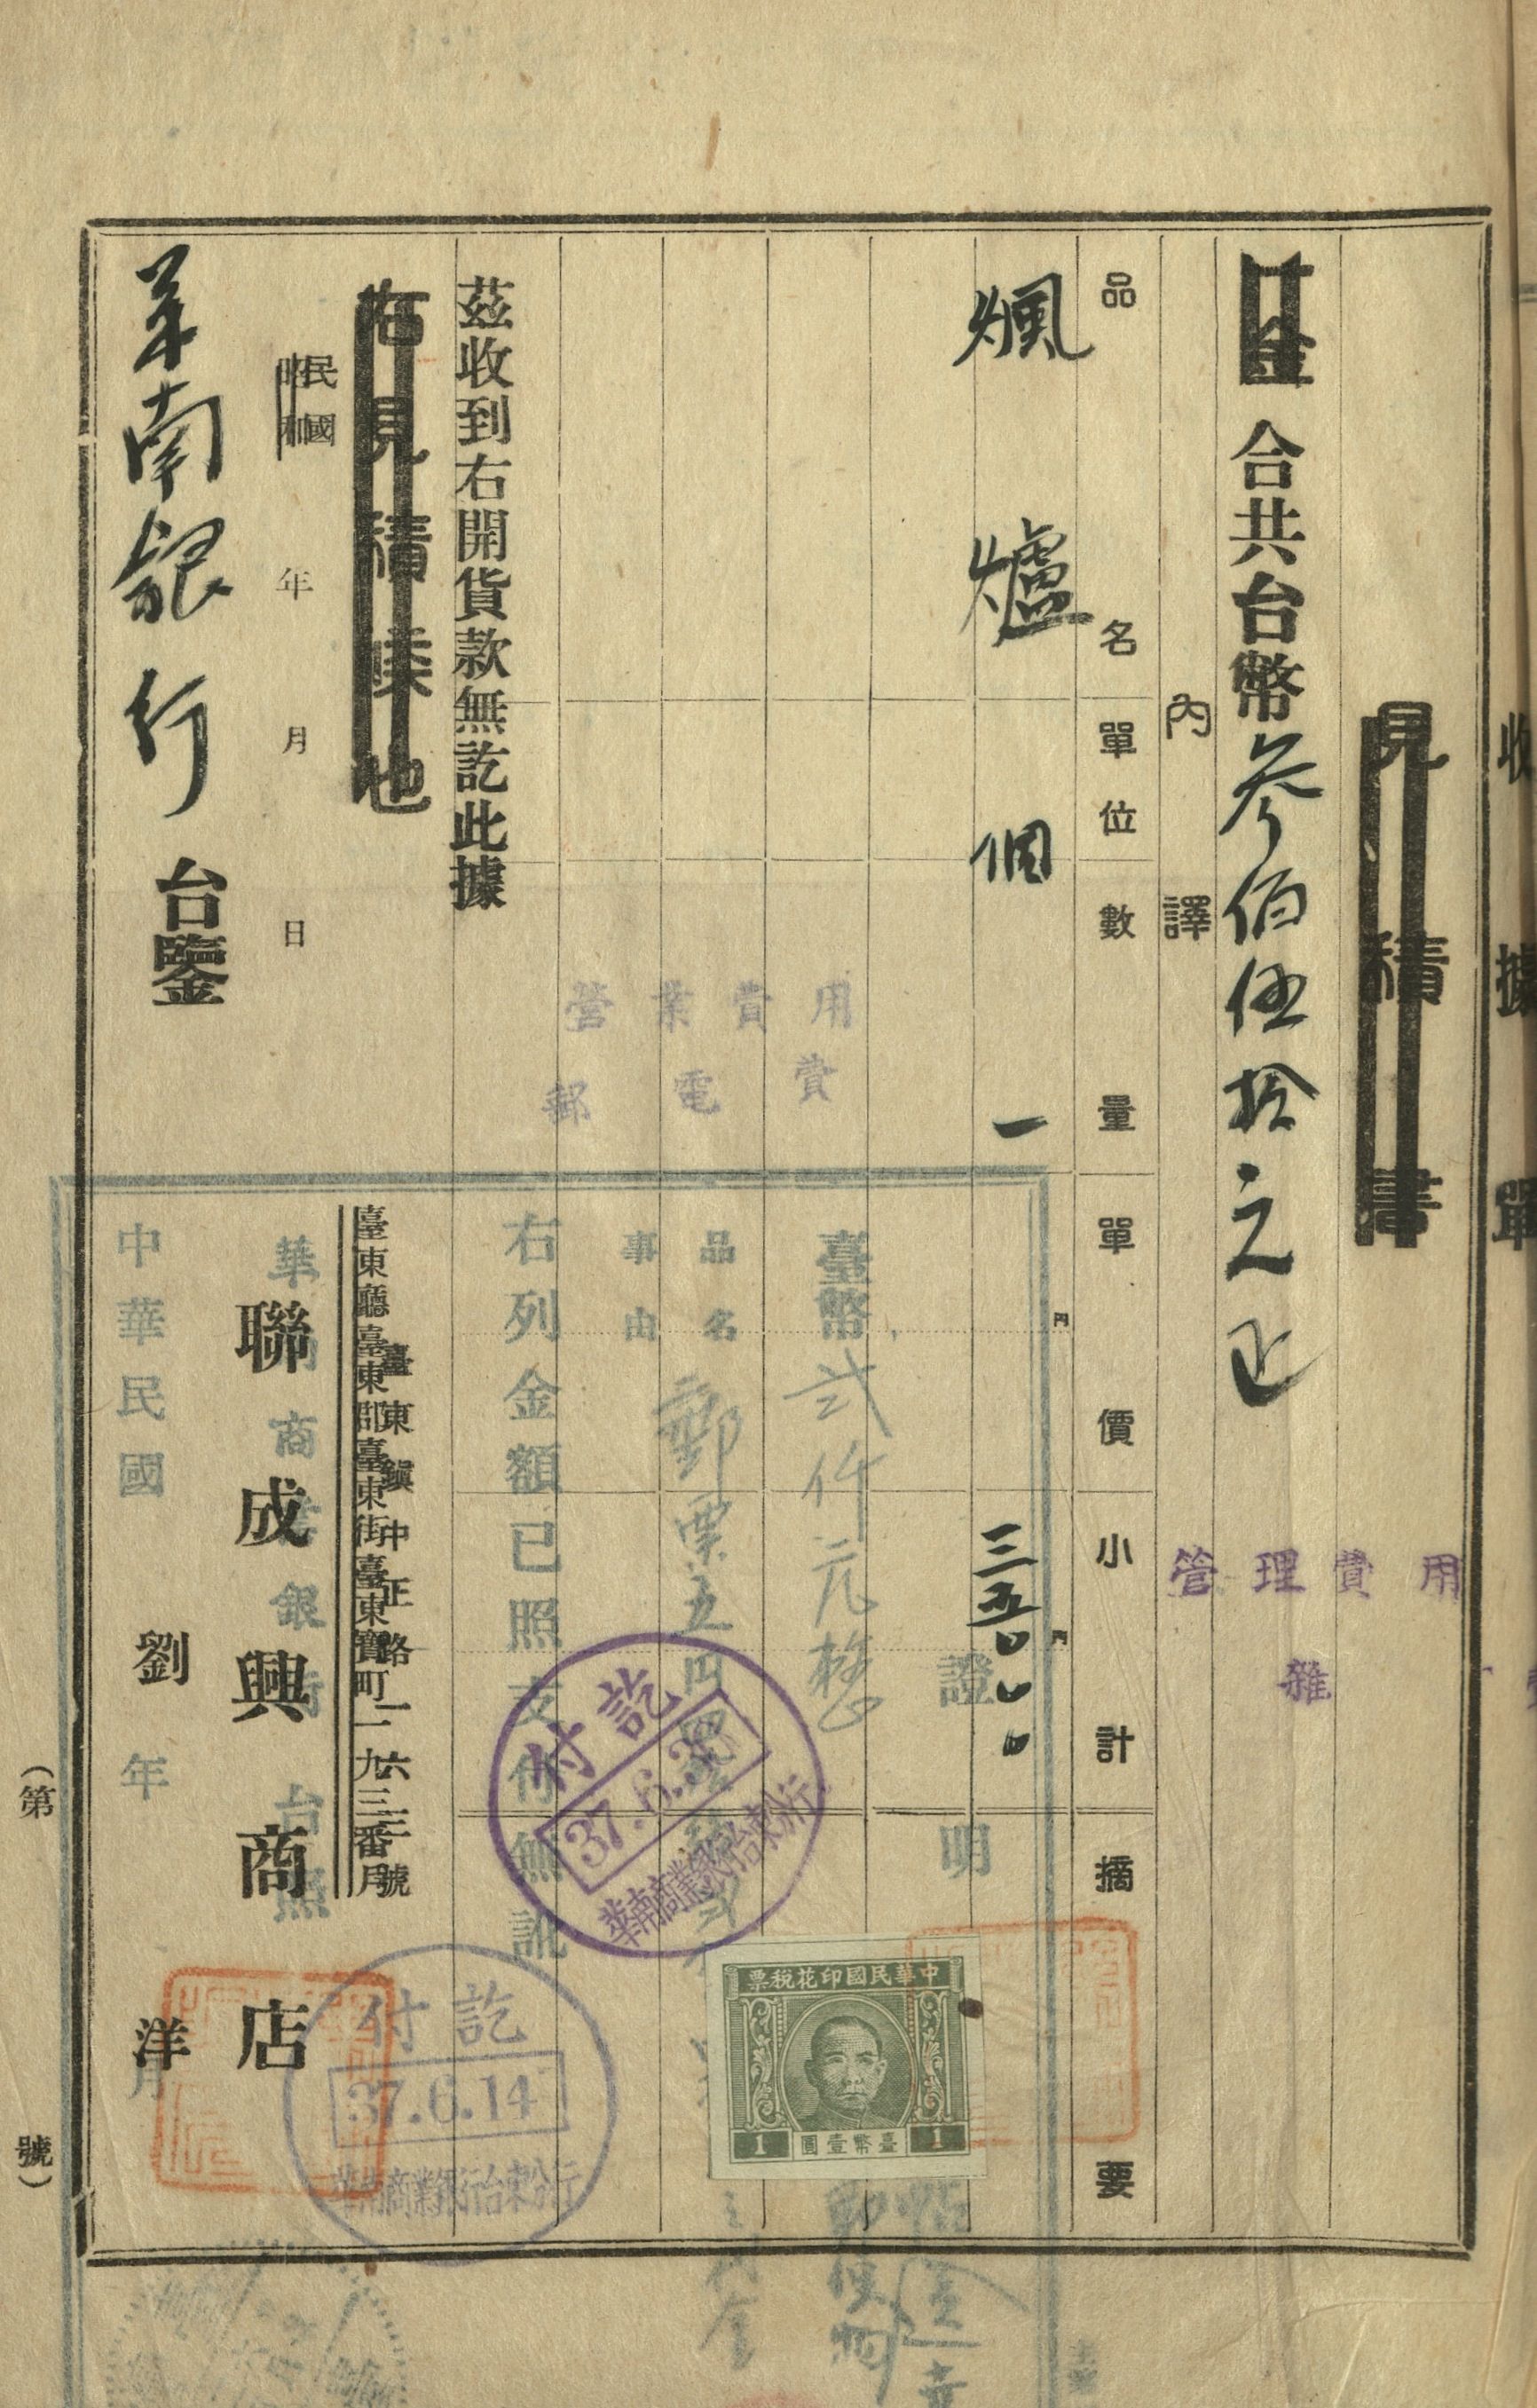 收據單
見積書
一金 合共台幣參佰伍拾元正
內譯
品名 單位 數量 單價 小計 摘要
煽爐 個 一 三五〇〇〇
茲收到右開貨款無訖此據
右見積候也
民國
昭和 年 月 日
華南銀行 台鑒
臺東鎮中正路一六三號
臺東廳臺東郡臺東街臺東寶町一九三番戶
聯成興商店
劉 洋
(第 號)
管理費用
雜
營業費用
郵電費
證明
臺幣弍仟元整
品名 郵票五円
事由
右列金額已照支付無訛
華南商業銀行 台照
中華民國 年 月
付訖
37.6.30
華南商業銀行台東分行
付訖
37.6.14
華南商業銀行台東分行
中華民國印花稅票
1 臺幣壹圓 1